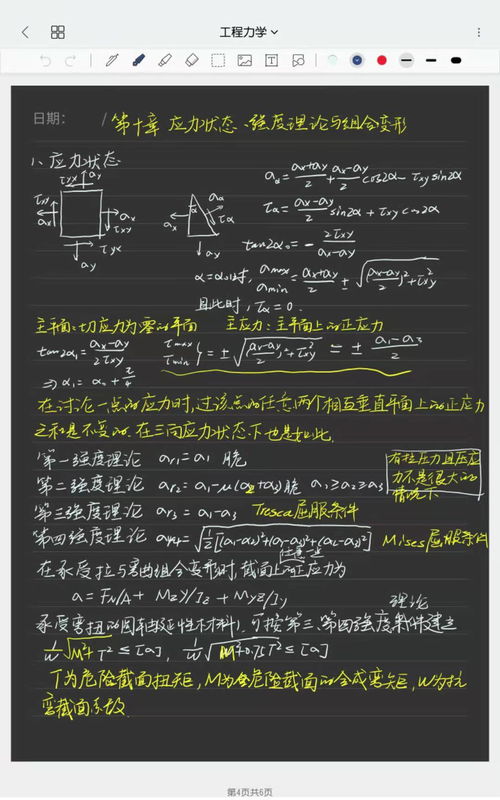 工程力学
日期: / 第十章 应力状态、强度理论与组合变形
1、应力状态
τyx σy
τxy
σx σx
τxy
τyx
σy
α σα
σx τα
σy
σα = (σx+σy)/2 + (σx-σy)/2 cos2α - τxy sin2α
τα = (σx-σy)/2 sin2α + τxy cos2α
tan2α₀ = - 2τxy/(σx-σy)
α=α₀时, σmax σmin = (σx+σy)/2 ± √((σx-σy)/2)²+τxy²
且此时, τα=0.
主平面:切应力为零的平面 主应力:主平面上的正应力
tan2α₁ = (σx-σy)/2τxy τmax τmin } = ±√((σx-σy)/2)²+τxy² = ± (σ1-σ3)/2
⇒ α₁ = α₀ + π/4
在讨论一点的应力时,过该点的任意两个相互垂直平面上的正应力
之和是不变的.在三向应力状态下也是如此.
第一强度理论 σr1=σ1 脆
第二强度理论 σr2=σ1-μ(σ2+σ3)脆 σ1≥σ2≥σ3
有拉压力且压应
力不是很大的
情况下
第三强度理论 σr3=σ1-σ3 Tresca屈服条件
第四强度理论 σr4=√½[(σ1-σ2)²+(σ1-σ3)²+(σ2-σ3)²] Mises屈服条件
任意一点
在承受拉与弯曲组合变形时,截面上的正应力为
σ = FN/A + MzY/Iz + Myz/Iy
理论
承受弯扭的圆轴(延性材料)可按第三、第四强度条件建立
1/W √M²+T² ≤ [σ], 1/W √M²+0.75T² ≤ [σ]
T为危险截面扭矩,M为危险截面的合成弯矩,W为抗
弯截面系数.
第4页共6页